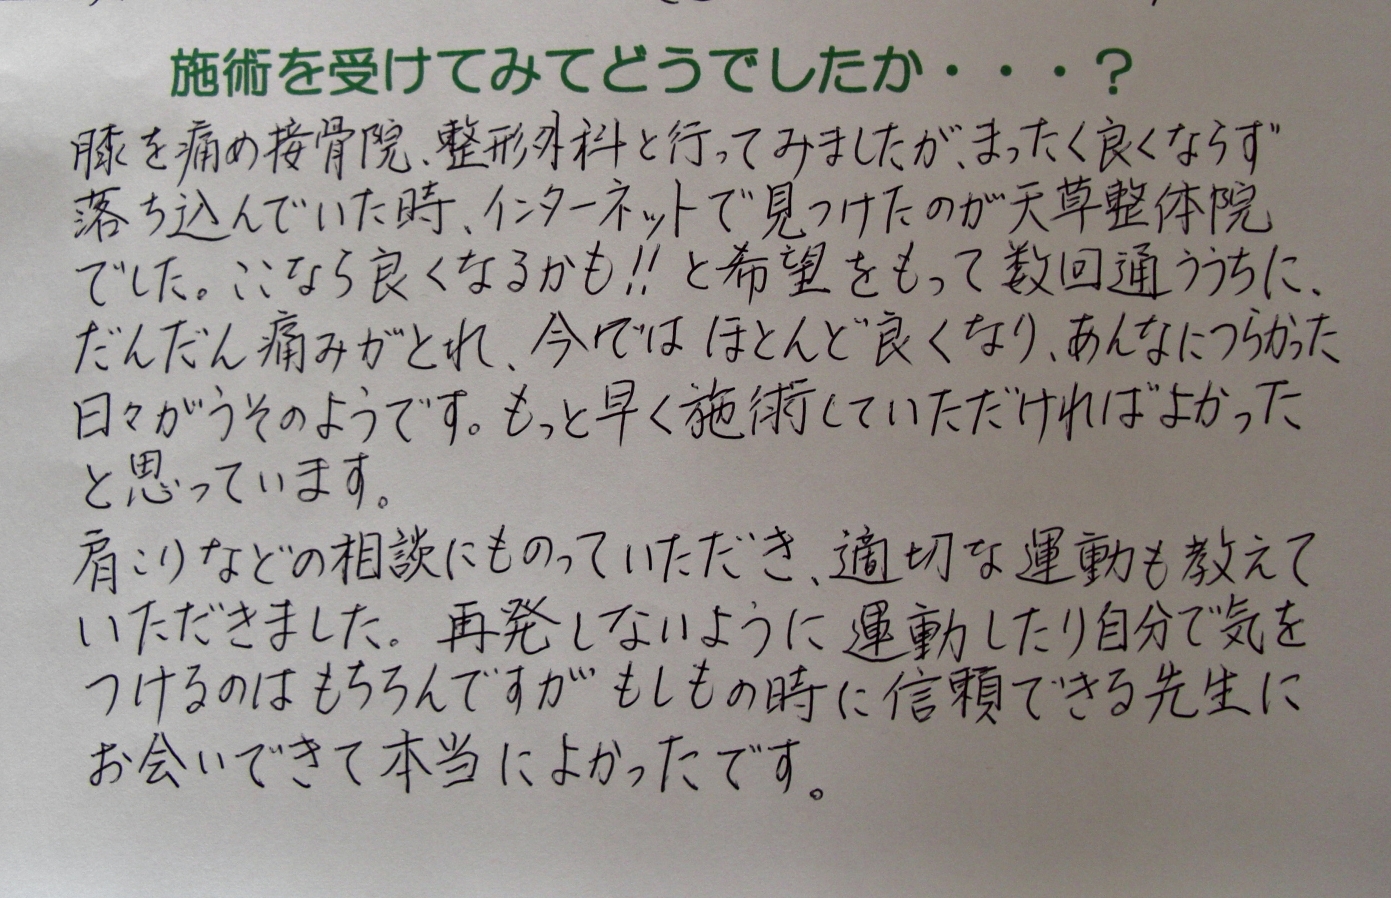 施術を受けてみてどうでしたか・・・？
膝を痛め接骨院、整形外科と行ってみましたが、まったく良くならず
落ち込んでいた時、インターネットで見つけたのが天草整体院
でした。ここなら良くなるかも!! と希望をもって数回通ううちに、
だんだん痛みがとれ、今ではほとんど良くなり、あんなにつらかった
日々がうそのようです。もっと早く施術していただければよかった
と思っています。
肩こりなどの相談にものっていただき、適切な運動も教えて
いただきました。再発しないように運動したり自分で気を
つけるのはもちろんですがもしもの時に信頼できる先生に
お会いできて本当によかったです。